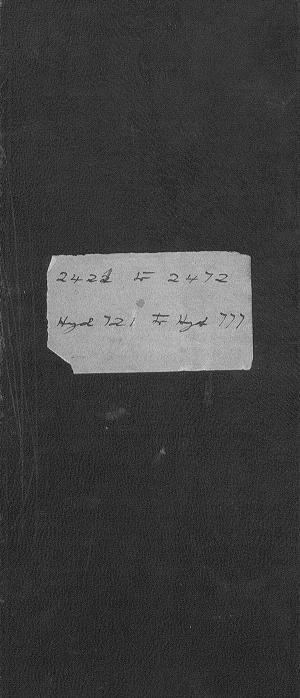 2422 to 2472
Hyd 721 to Hyd 777